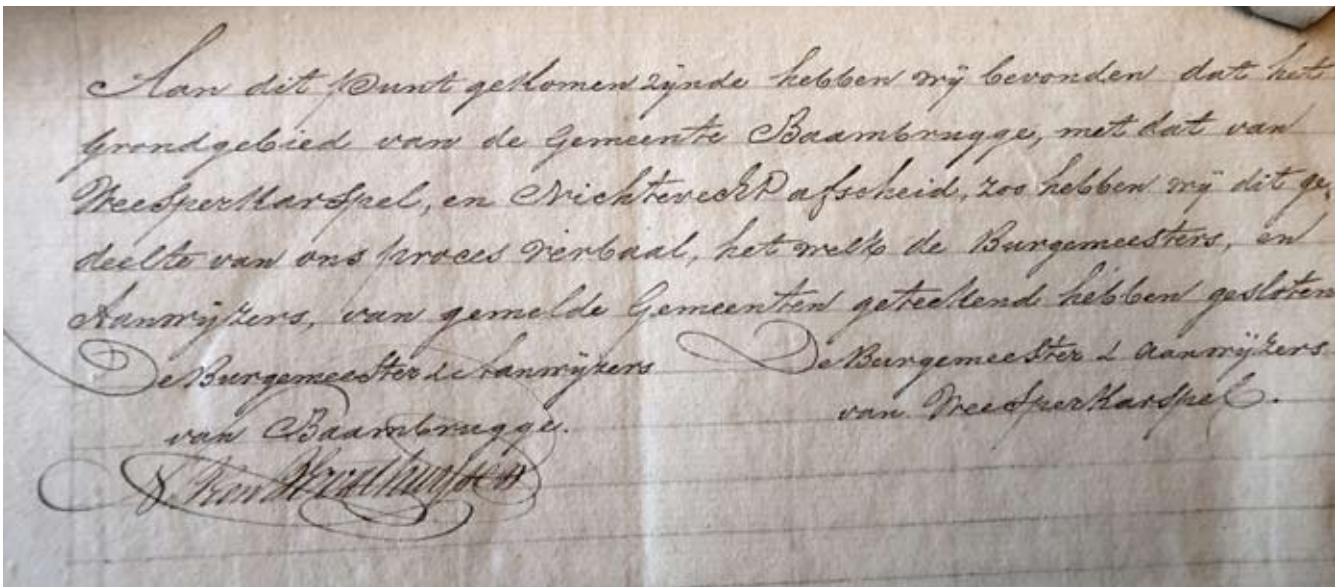 Aan dit punt gekomen zijnde hebben wij bevonden dat het
grondgebied van de Gemeente Baambrugge, met dat van
Weesperkarspel, en Nichtevecht afscheid, zoo hebben wij dit ge„
deelte van ons proces verbaal, het welk de Burgemeesters, en
Aanwijzers, van gemelde Gemeenten geteekend hebben gesloten
De Burgemeester & Aanwijzers
van Baambrugge.
De Burgemeester & Aanwijzers
van Weesperkarspel.